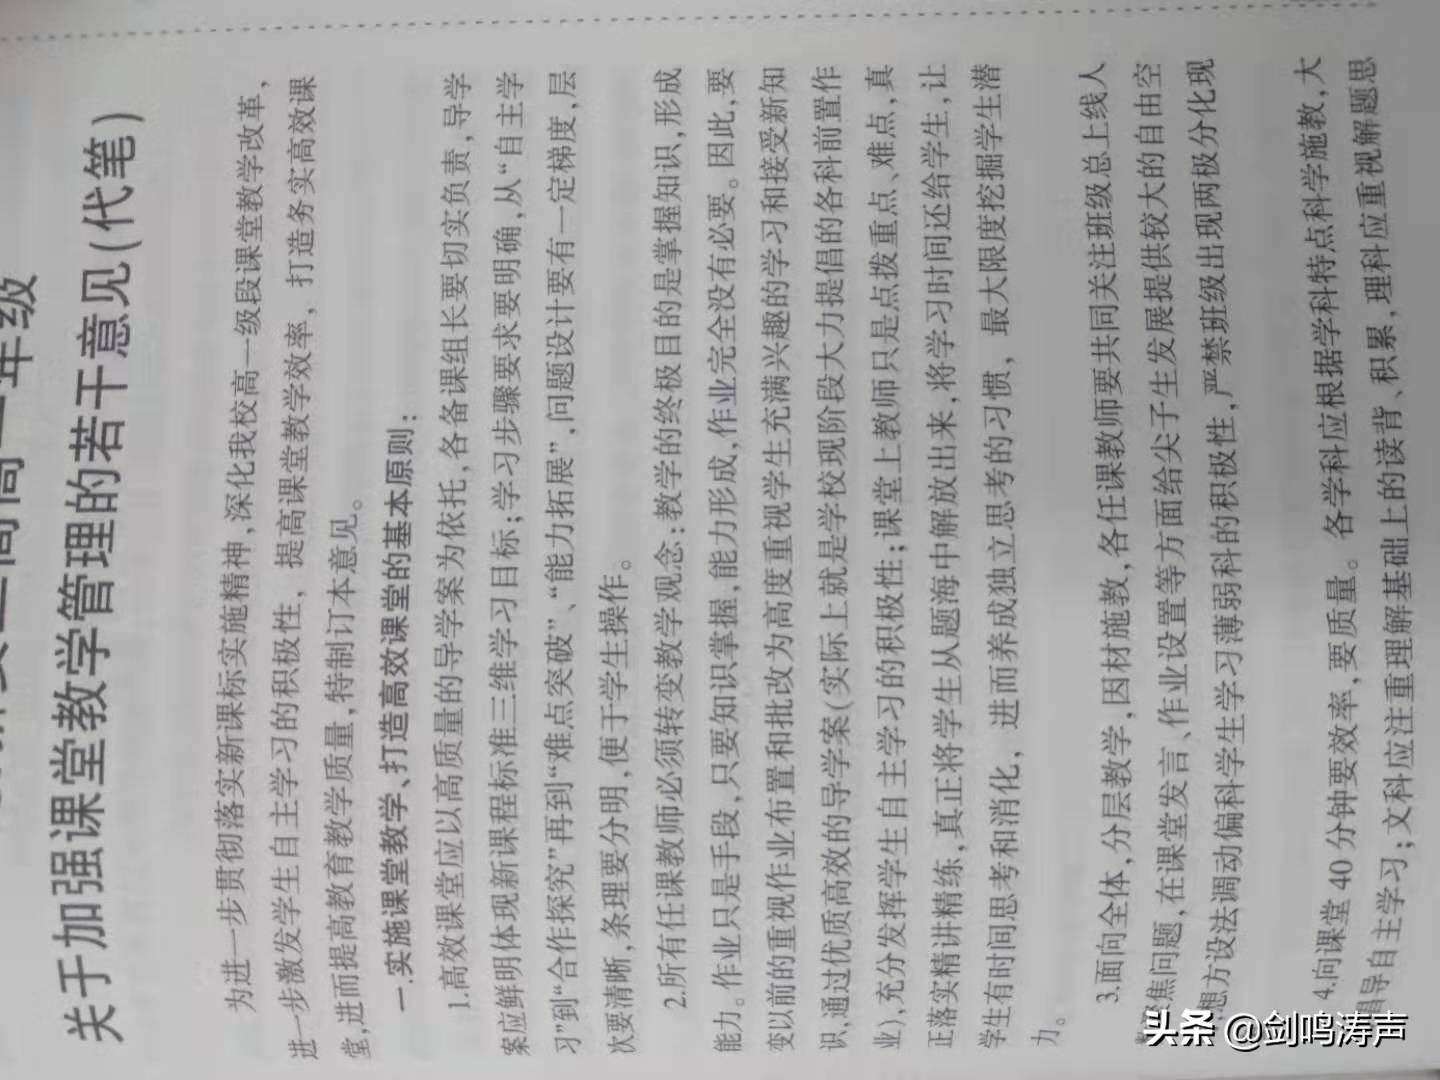 关于加强课堂教学管理的若干意见(代笔)
为进一步贯彻落实新课标实施精神,深化我校高一级段课堂教学改革,
进一步激发学生自主学习的积极性，提高课堂教学效率，打造务实高效课
堂,进而提高教育教学质量,特制订本意见。
一.实施课堂教学、打造高效课堂的基本原则：
1.高效课堂应以高质量的导学案为依托,各备课组长要切实负责,导学
案应鲜明体现新课程标准三维学习目标;学习步骤要求要明确,从“自主学
习”到“合作探究”再到“难点突破”、“能力拓展”,问题设计要有一定梯度,层
次要清晰,条理要分明,便于学生操作。
2.所有任课教师必须转变教学观念：教学的终极目的是掌握知识,形成
能力。作业只是手段,只要知识掌握,能力形成,作业完全没有必要。因此,要
变以前的重视作业布置和批改为高度重视学生充满兴趣的学习和接受新知
识,通过优质高效的导学案(实际上就是学校现阶段大力提倡的各科前置作
业),充分发挥学生自主学习的积极性;课堂上教师只是点拨重点、难点,真
正落实精讲精练,真正将学生从题海中解放出来,将学习时间还给学生,让
学生有时间思考和消化，进而养成独立思考的习惯，最大限度挖掘学生潜
力。
3.面向全体,分层教学,因材施教,各任课教师要共同关注班级总上线人
聚焦问题,在课堂发言、作业设置等方面给尖子生发展提供较大的自由空
想方设法调动偏科学生学习薄弱科的积极性,严禁班级出现两极分化现
4.向课堂 40 分钟要效率,要质量。各学科应根据学科特点科学施教,大
倡导自主学习;文科应注重理解基础上的读背、积累,理科应重视解题思
头条 @剑鸣涛声